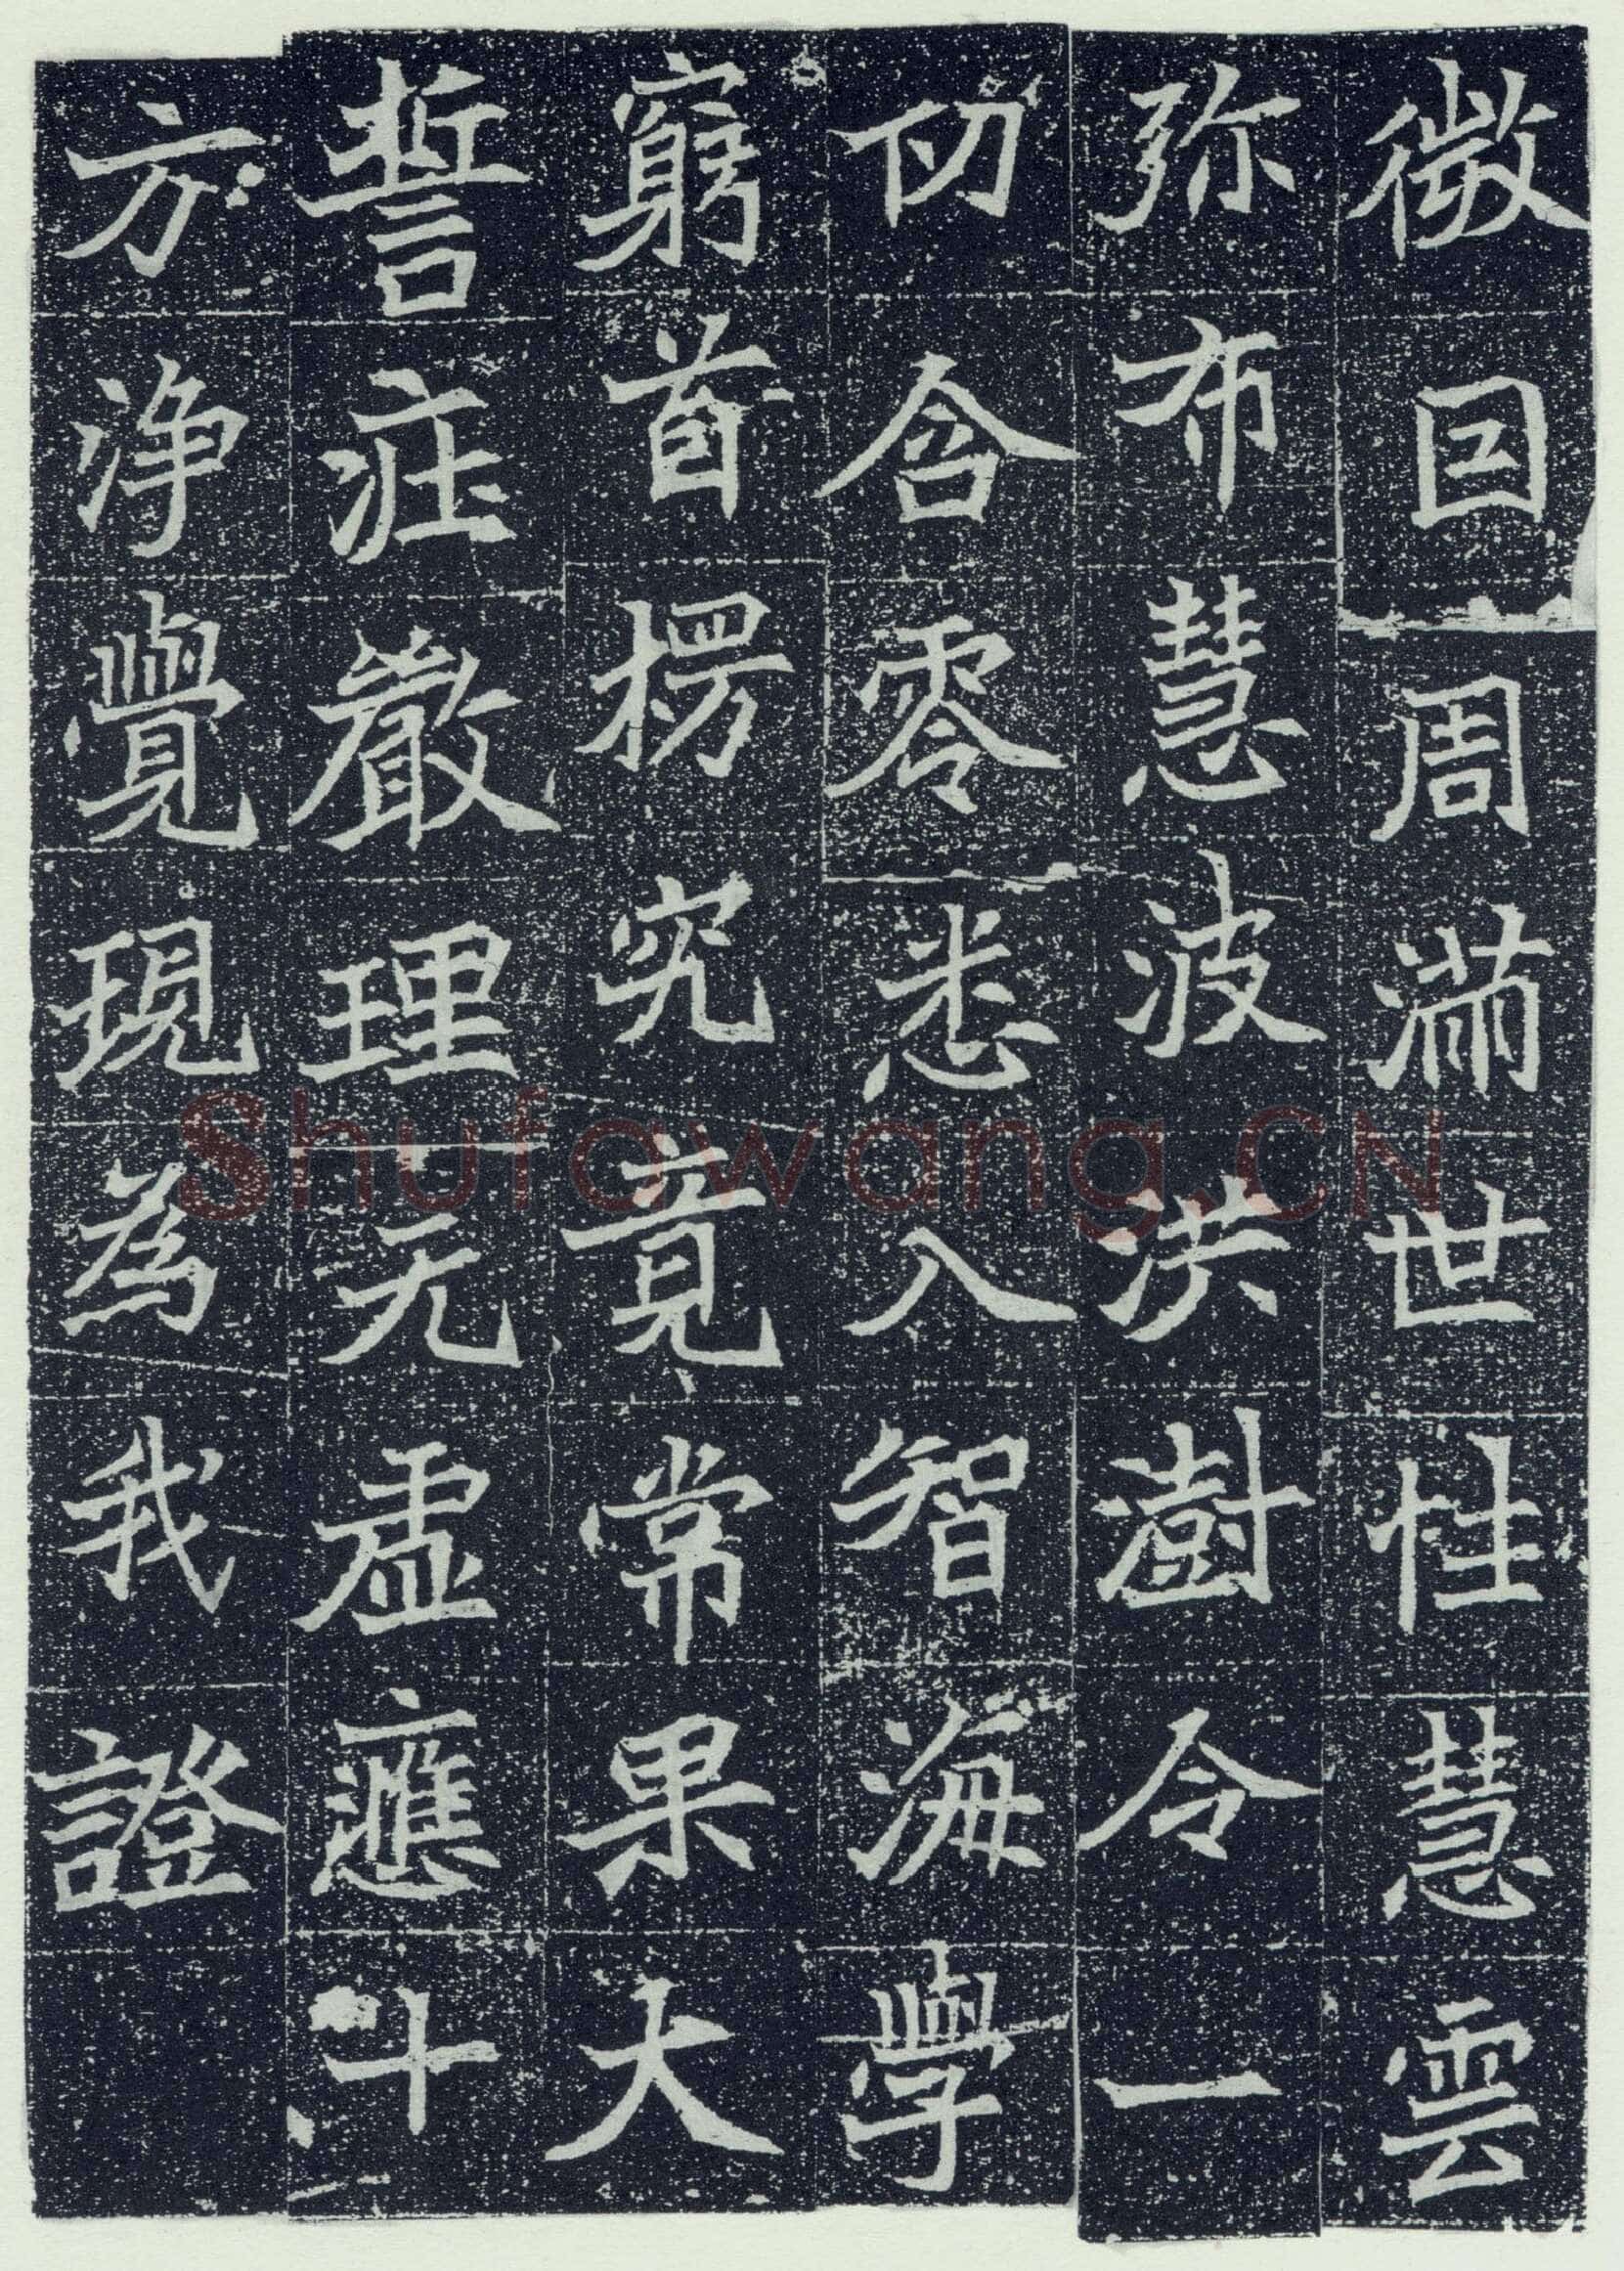 微囙周滿世性慧雲
弥布慧波洪澍令一
切含零悉入智海學
窮首楞究竟常果大
誓莊嚴理无虛應十
方淨覺現為我證
Shufawang.CN